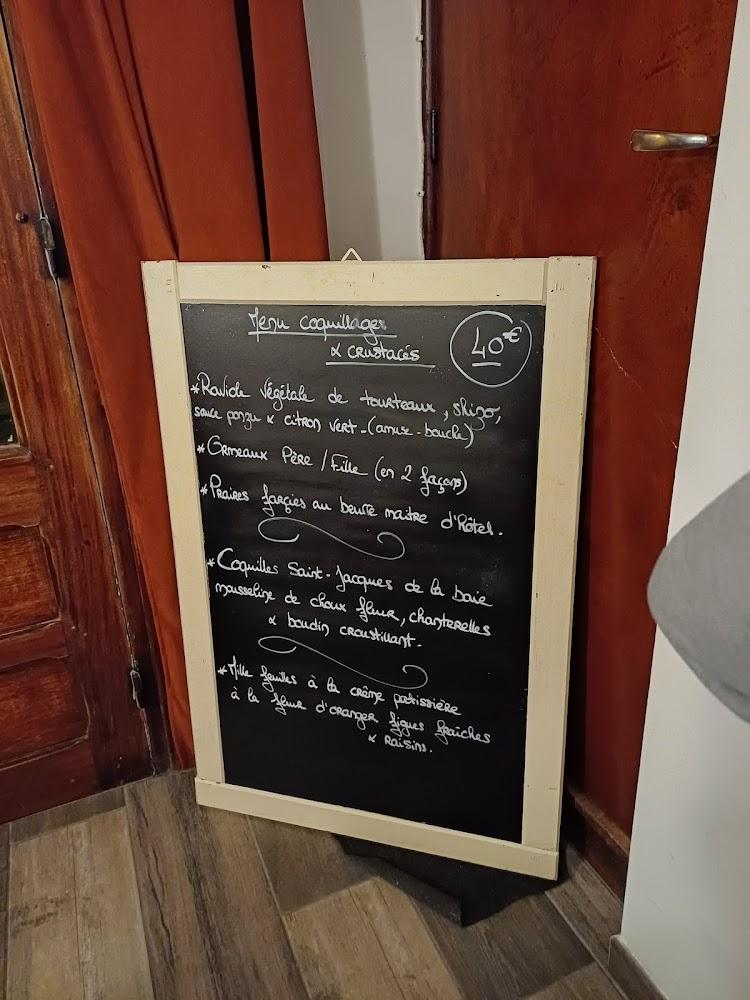 Menu coquillages
& crustacés
40€
*Raviole végétale de tourteaux, shizo,
sauce ponzu & citron vert - (amuse-bouche)
*Ormeaux Père / Fille (en 2 façons)
*Praires farçies au beurre maitre d'hôtel.
*Coquilles Saint-Jacques de la baie
mousseline de choux fleur, chanterelles
& boudin croustillant.
*Mille feuilles à la crème patissière
à la fleur d'oranger figues fraîches
& raisins.